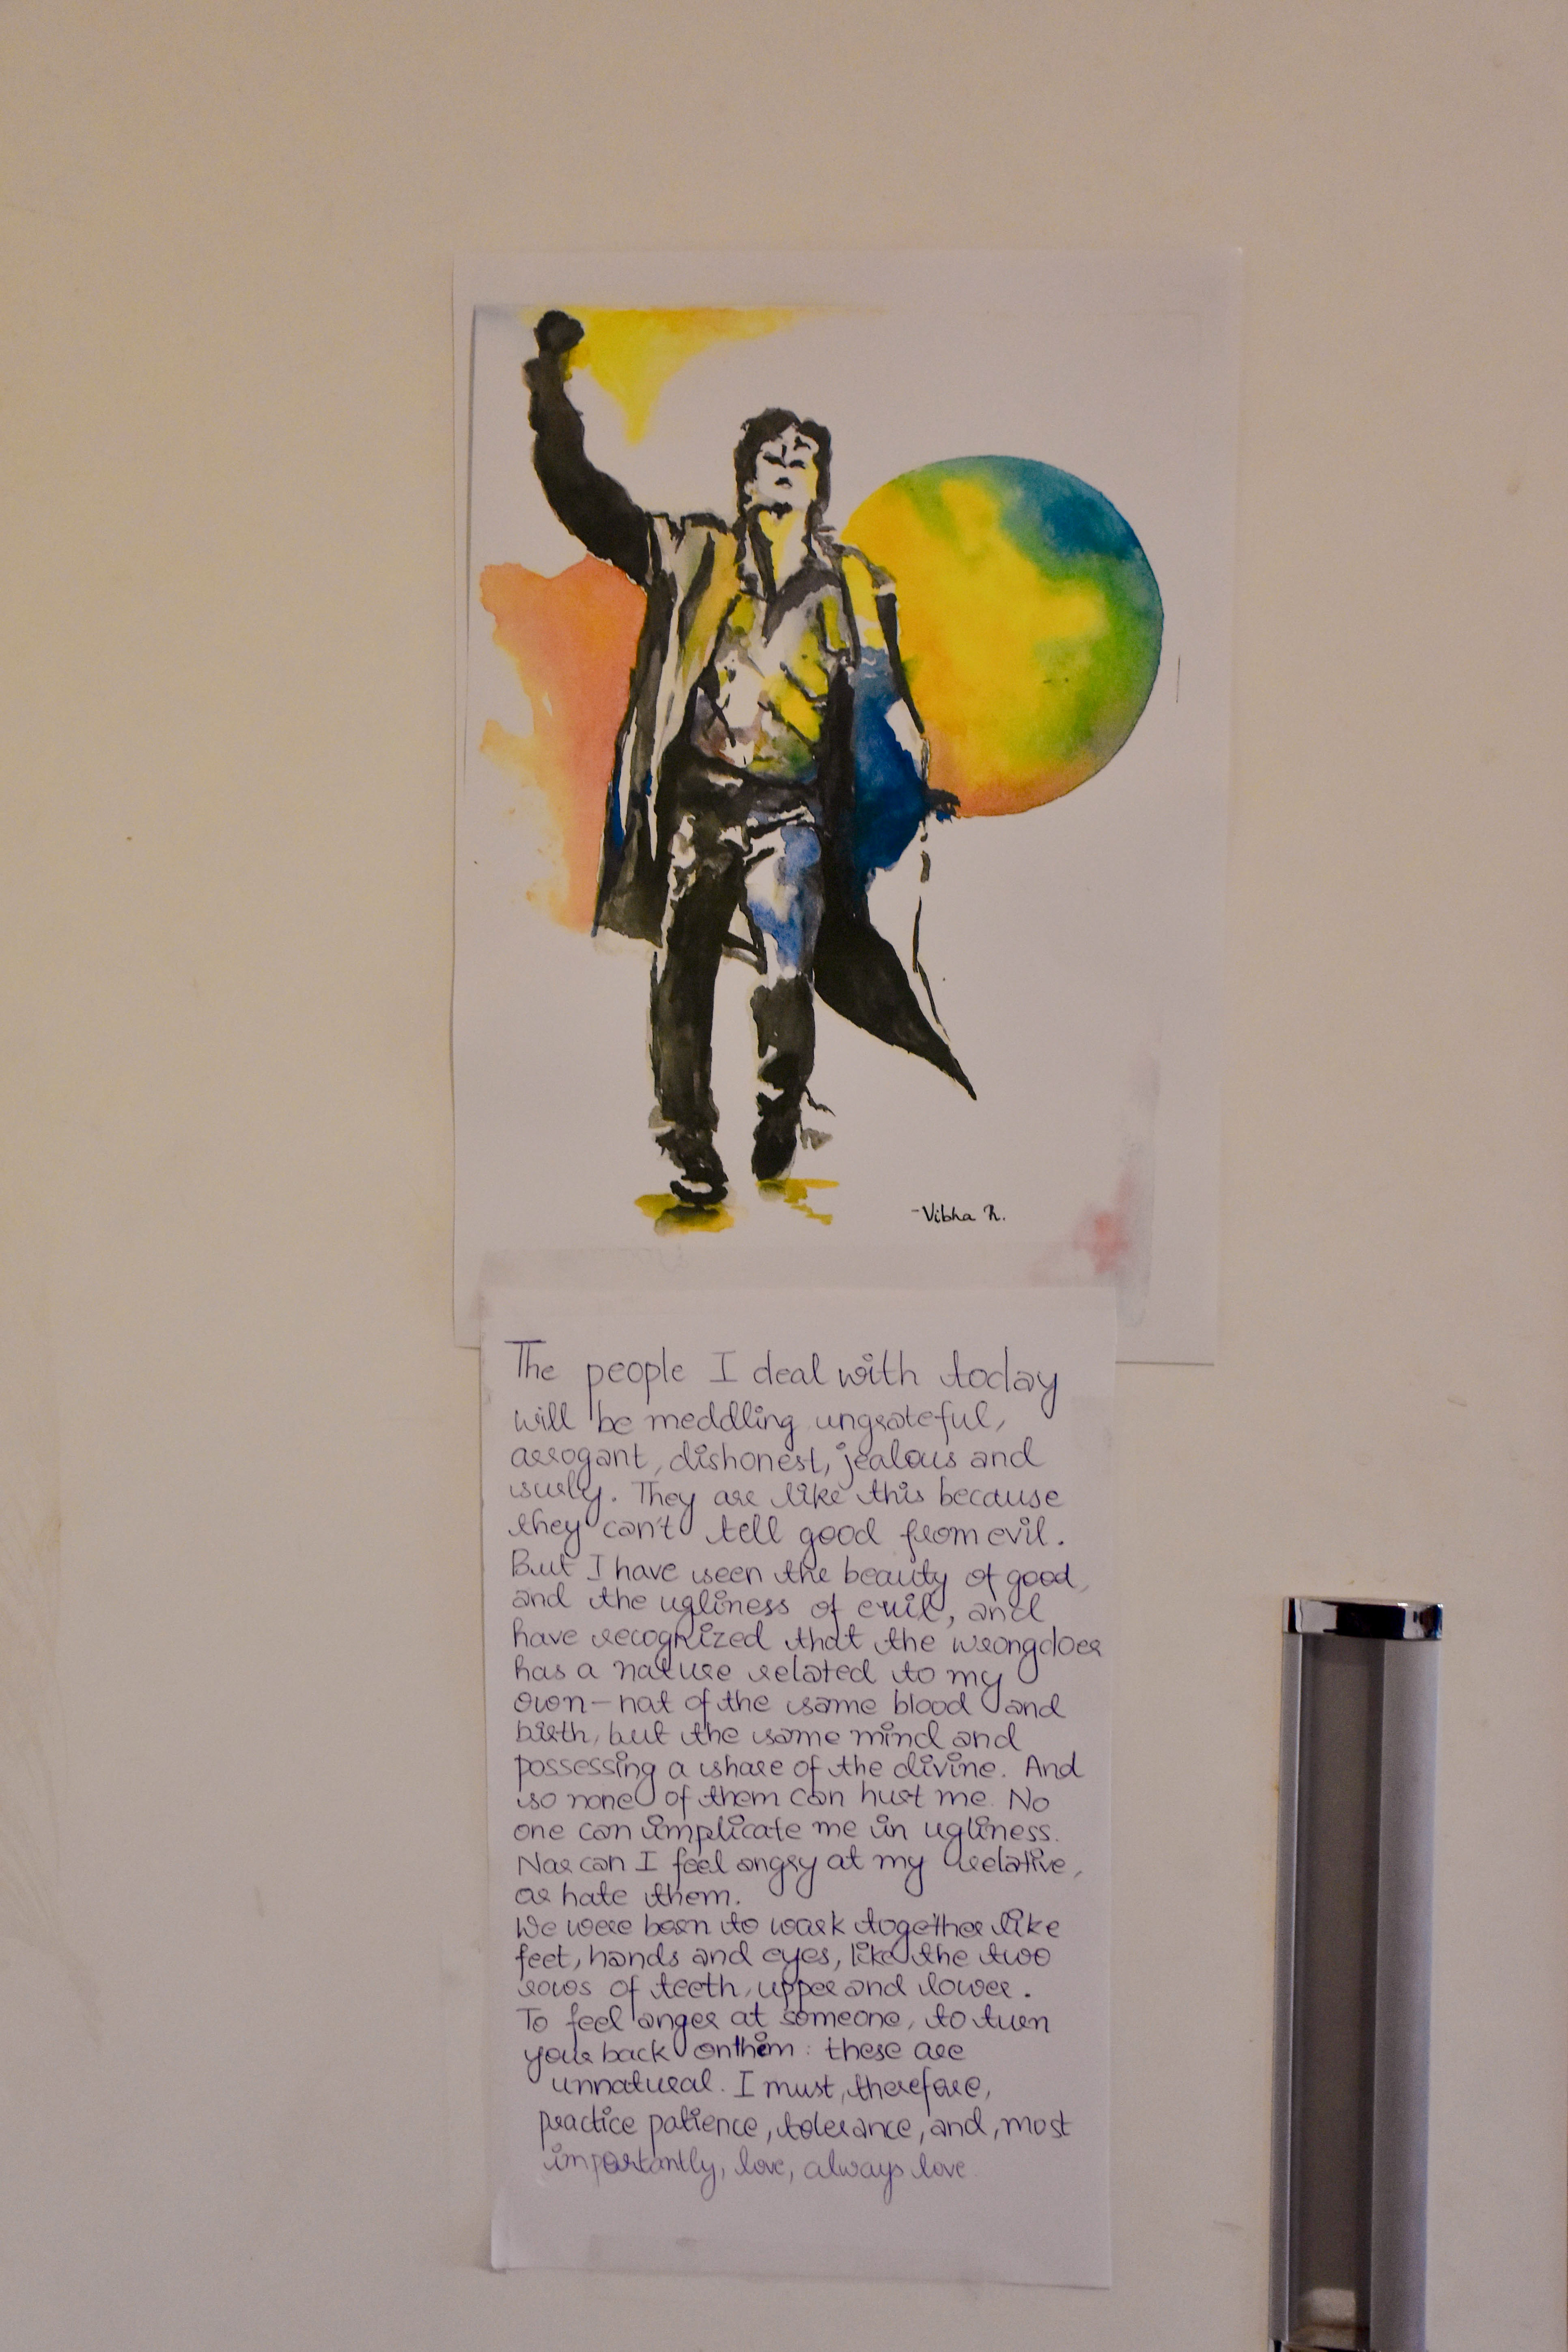 -Vibha R.
The people I deal with today
will be meddling ungrateful,
arrogant, dishonest, jealous and
surly. They are like this because
they can't tell good from evil.
But I have seen the beauty of good,
and the ugliness of evil, and
have recognized that the wrongdoer
has a nature related to my
own - not of the same blood and
birth, but the same mind and
possessing a share of the divine. And
so none of them can hurt me. No
one can implicate me in ugliness.
Nor can I feel angry at my relative,
or hate them.
We were born to work together like
feet, hands and eyes, like the two
rows of teeth, upper and lower.
To feel anger at someone, to turn
your back on them: these are
unnatural. I must, therefore,
practice patience, tolerance, and, most
importantly, love, always love.